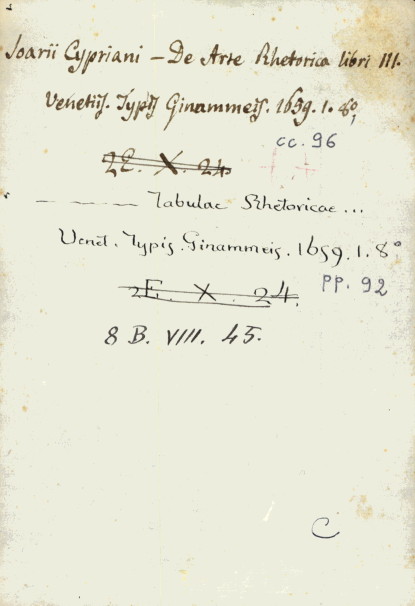 Soarii Cypriani – De Arte Rhetorica libri III.
Venetiis. Typis Ginammeis. 1659. 1. 8º,
cc. 96
2E. X. 24
— — — — Tabulae Rhetoricae...
Venet. Typis. Ginammeis. 1659. 1. 8º
pp. 92
2E. X. 24.
8 B. VIII. 45.
C